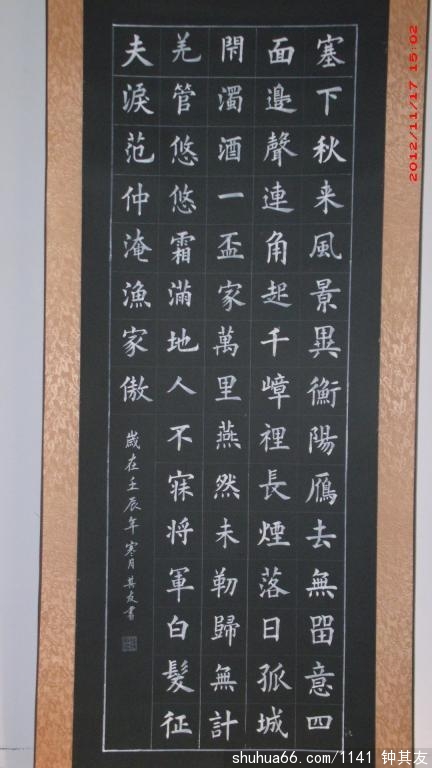 塞下秋来風景異衡陽鴈去無留意四
面邊聲連角起千嶂裡長煙落日孤城
閇濁酒一盃家萬里燕然未勒歸無計
羌管悠悠霜滿地人不寐将軍白髮征
夫淚范仲淹漁家傲
歲在壬辰年寒月其友書
2012/11/17 15:02
shuhua66.com/1141 钟其友